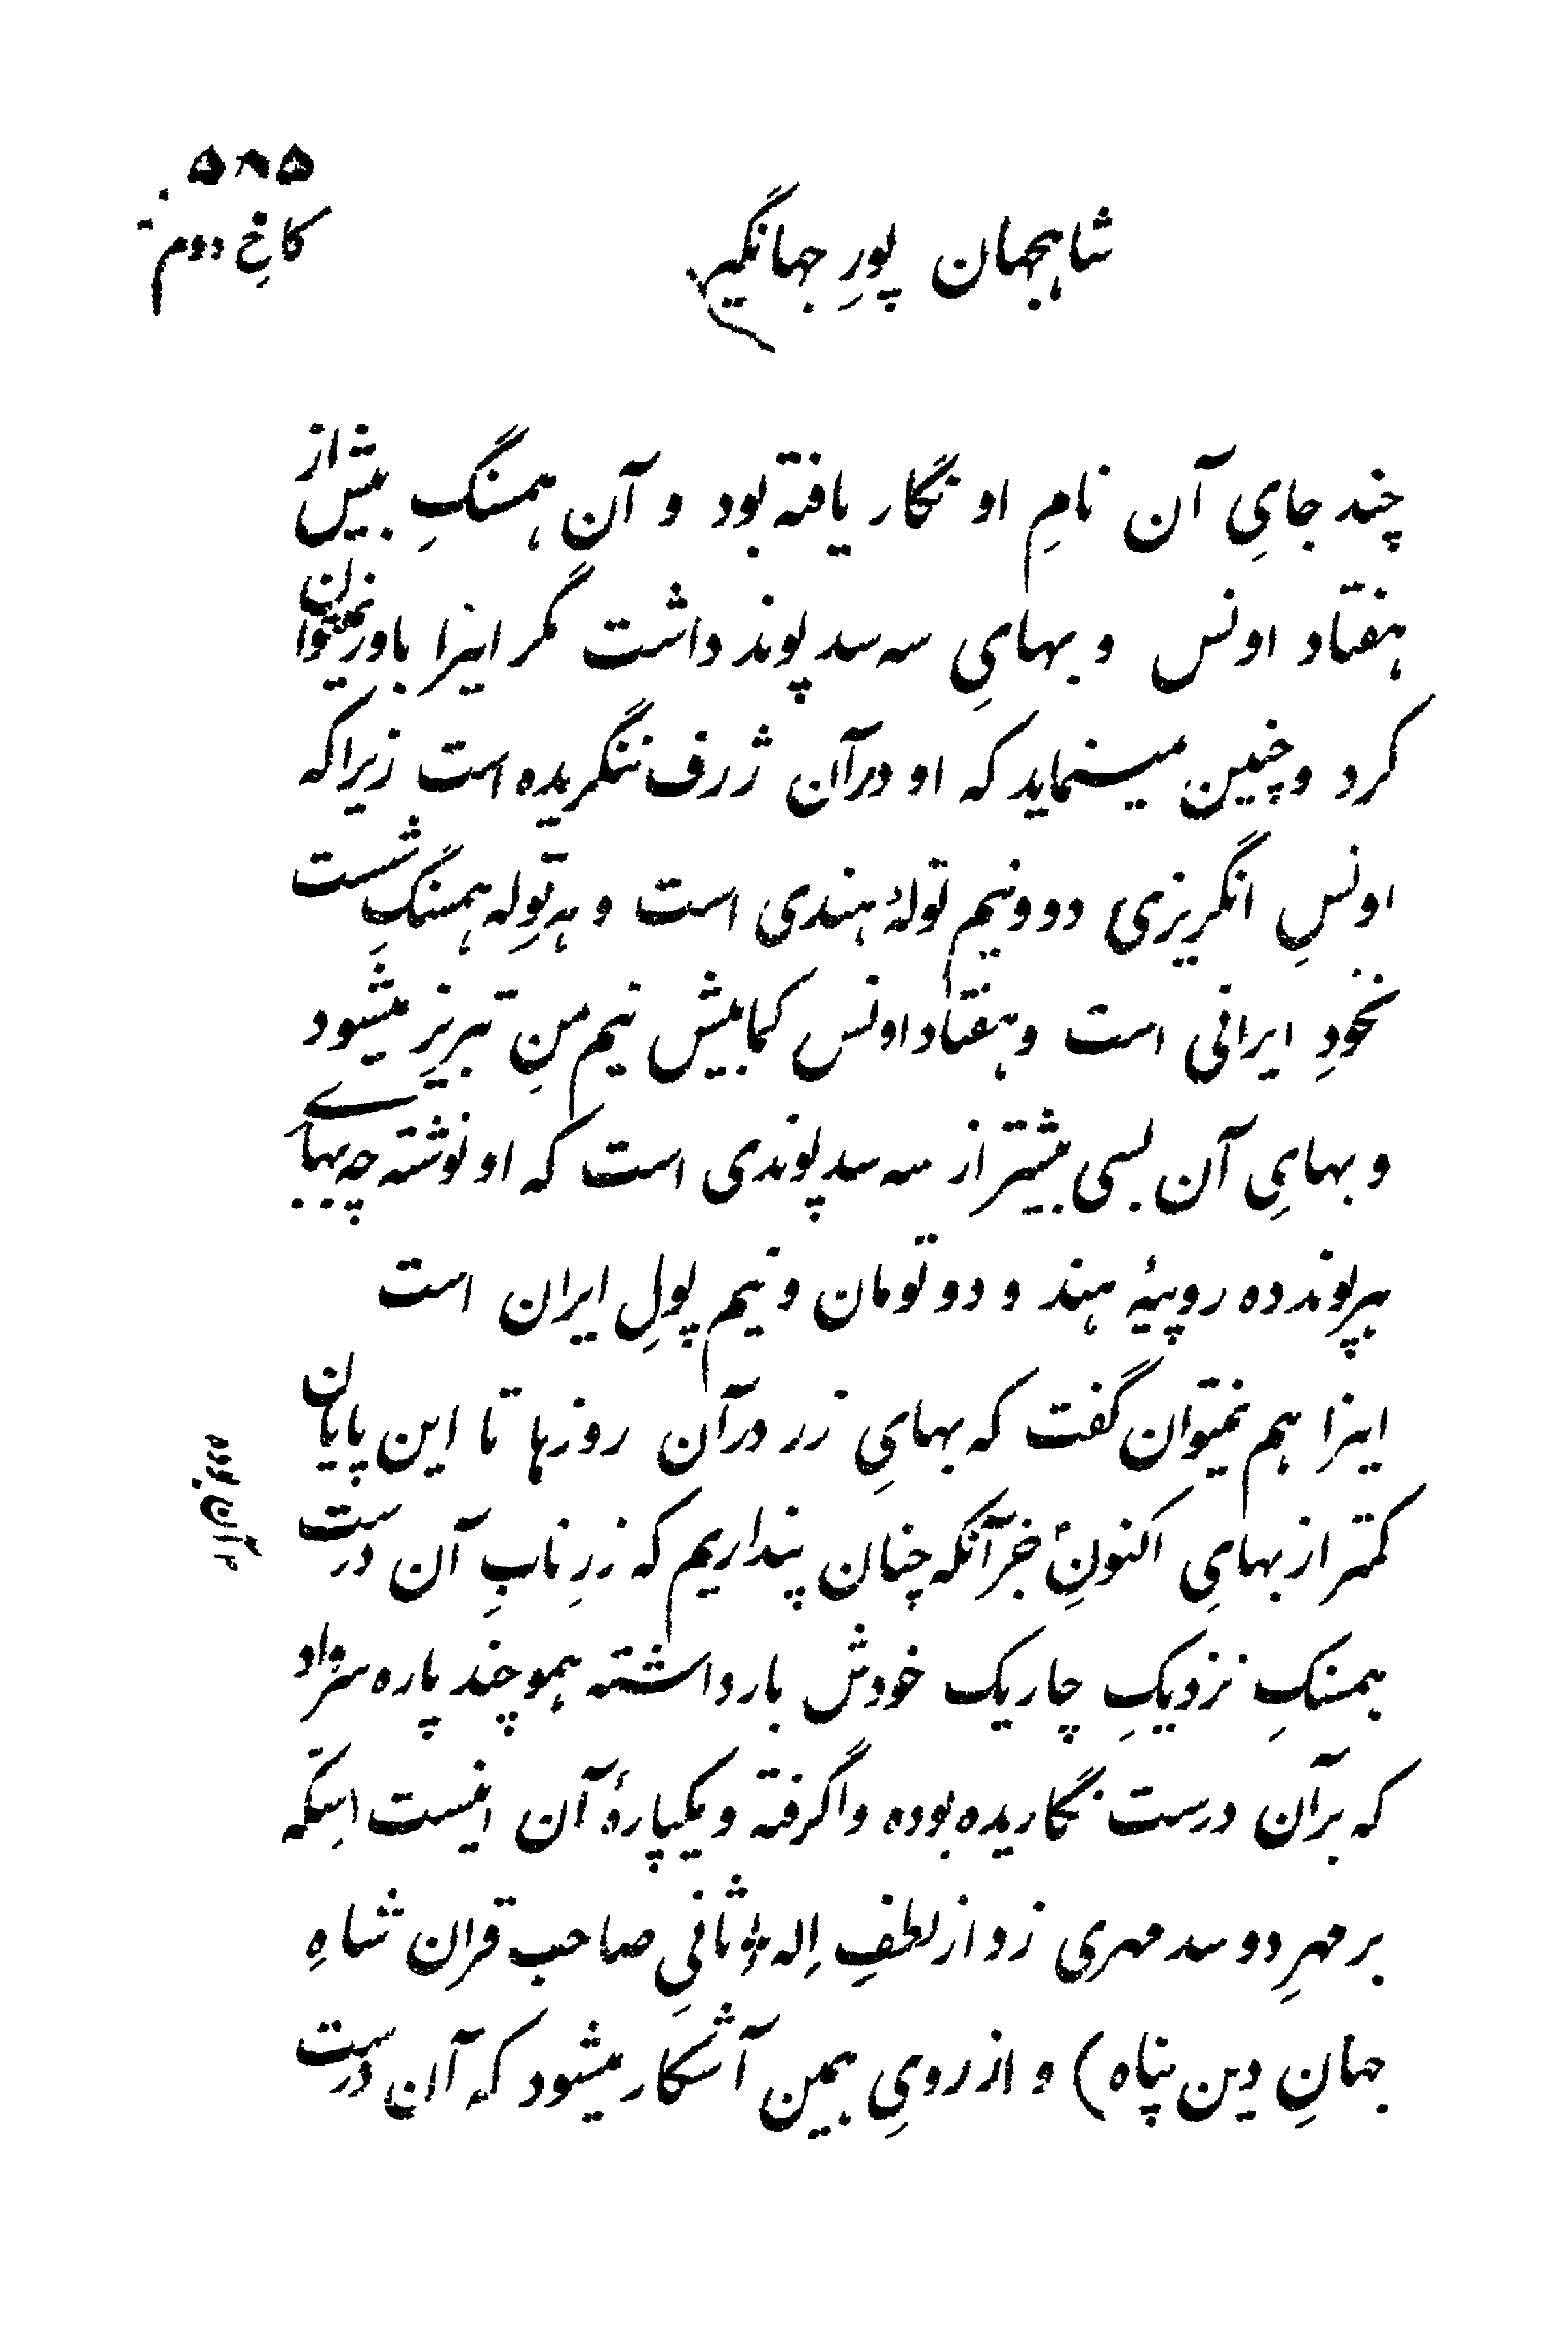 ۵۸۵
کاخِ دوم
شاهجهان پورِ جهانگیر
چند جایِ آن نامِ او نگار یافته بود و آن همسنگِ بیش از
هفتاد اونس و بهایِ سه سد پوند داشت مگر اینرا باور نمیتوان
کرد و چنین مینماید که او در آن ژرف ننگریده است زیرا که
اونسِ انگریزی دو و نیم تولهٔ هندی است و هر توله همسنگِ شست
نخودِ ایرانی است و هفتاد اونس کمابیش نیم منِ تبریز میشود
و بهایِ آن بسی بیشتر از سه سد پوندی است که او نوشته چه بهاے
هر پوند ده روپیهٔ هند و دو تومان و نیم پولِ ایران است
اینرا هم نمیتوان گفت که بهایِ زر در آن روزها تا این پایان
کمتر از بهایِ اکنونِ جز آنکه چنان پنداریم که زرِ نابِ آن درست
همسنکِ نزدیکِ چاریک خودش بار داشته همو چند پاره سرواد
که بر آن درست نگاریده بوده واگرفته و یکپارهٔ آن اینست (سکّه
بر مهرِ دو سد مهری زد از لطفِ اِله ثانیِ صاحب قران شاهِ
جهانِ دین پناه) و از رویِ همین آشکار میشود که آن درست